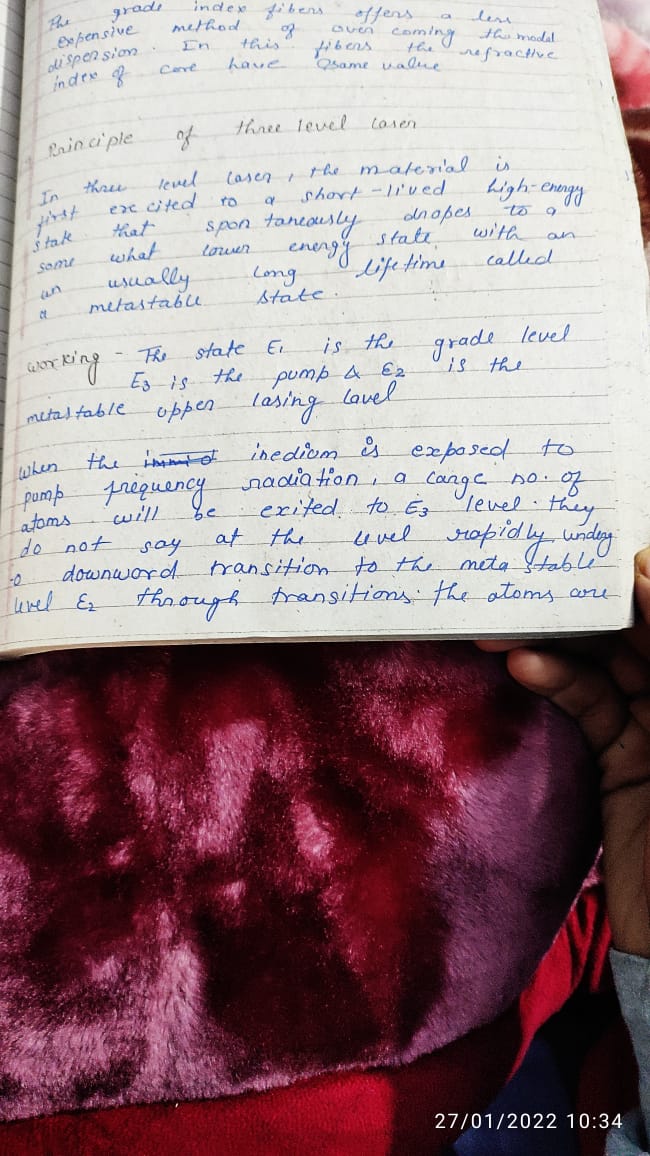 The grade index fibers offers a less
expensive method of over coming the modal
dispersion. In this fibers the refractive
index of core have same value
Principle of three level laser
In three level laser, the material is
first excited to a short-lived high-energy
state that spontaneously dropes to a
some what lower energy state with an
un usually long lifetime called
a metastable state.
working - The state E1 is the grade level
E3 is the pump & E2 is the
metastable upper lasing lavel
When the inedium is exposed to
pump frequency radiation, a large no. of
atoms will be exited to E3 level. they
do not say at the level rapidly underg
-o downword transition to the meta stable
level E2 through transitions. the atoms are
27/01/2022 10:34